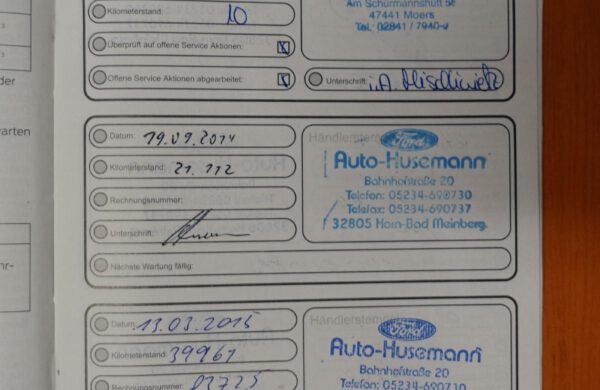 Kilometerstand: 10
Am Schürmannshütt 5e
47441 Moers
Tel. 02841 / 7940-0
Überprüft auf offene Service Aktionen:
Offene Service Aktionen abgearbeitet:
Unterschrift: i.A.
Datum: 19.09.2014
Händlerstempel
Ford
Kilometerstand: 21.112
Auto-Husemann
Bahnhofstraße 20
Rechnungsnummer:
Telefon: 05234-690730
Telefax: 05234-690737
Unterschrift:
32805 Horn-Bad Meinberg
Nächste Wartung fällig:
der
warten
hr-
Datum: 13.03.2015
Händlerstem
Ford
Kilometerstand: 39961
Auto-Husemann
Bahnhofstraße 20
Rechnungsnummer: 03725
Telefon: 05234-690730